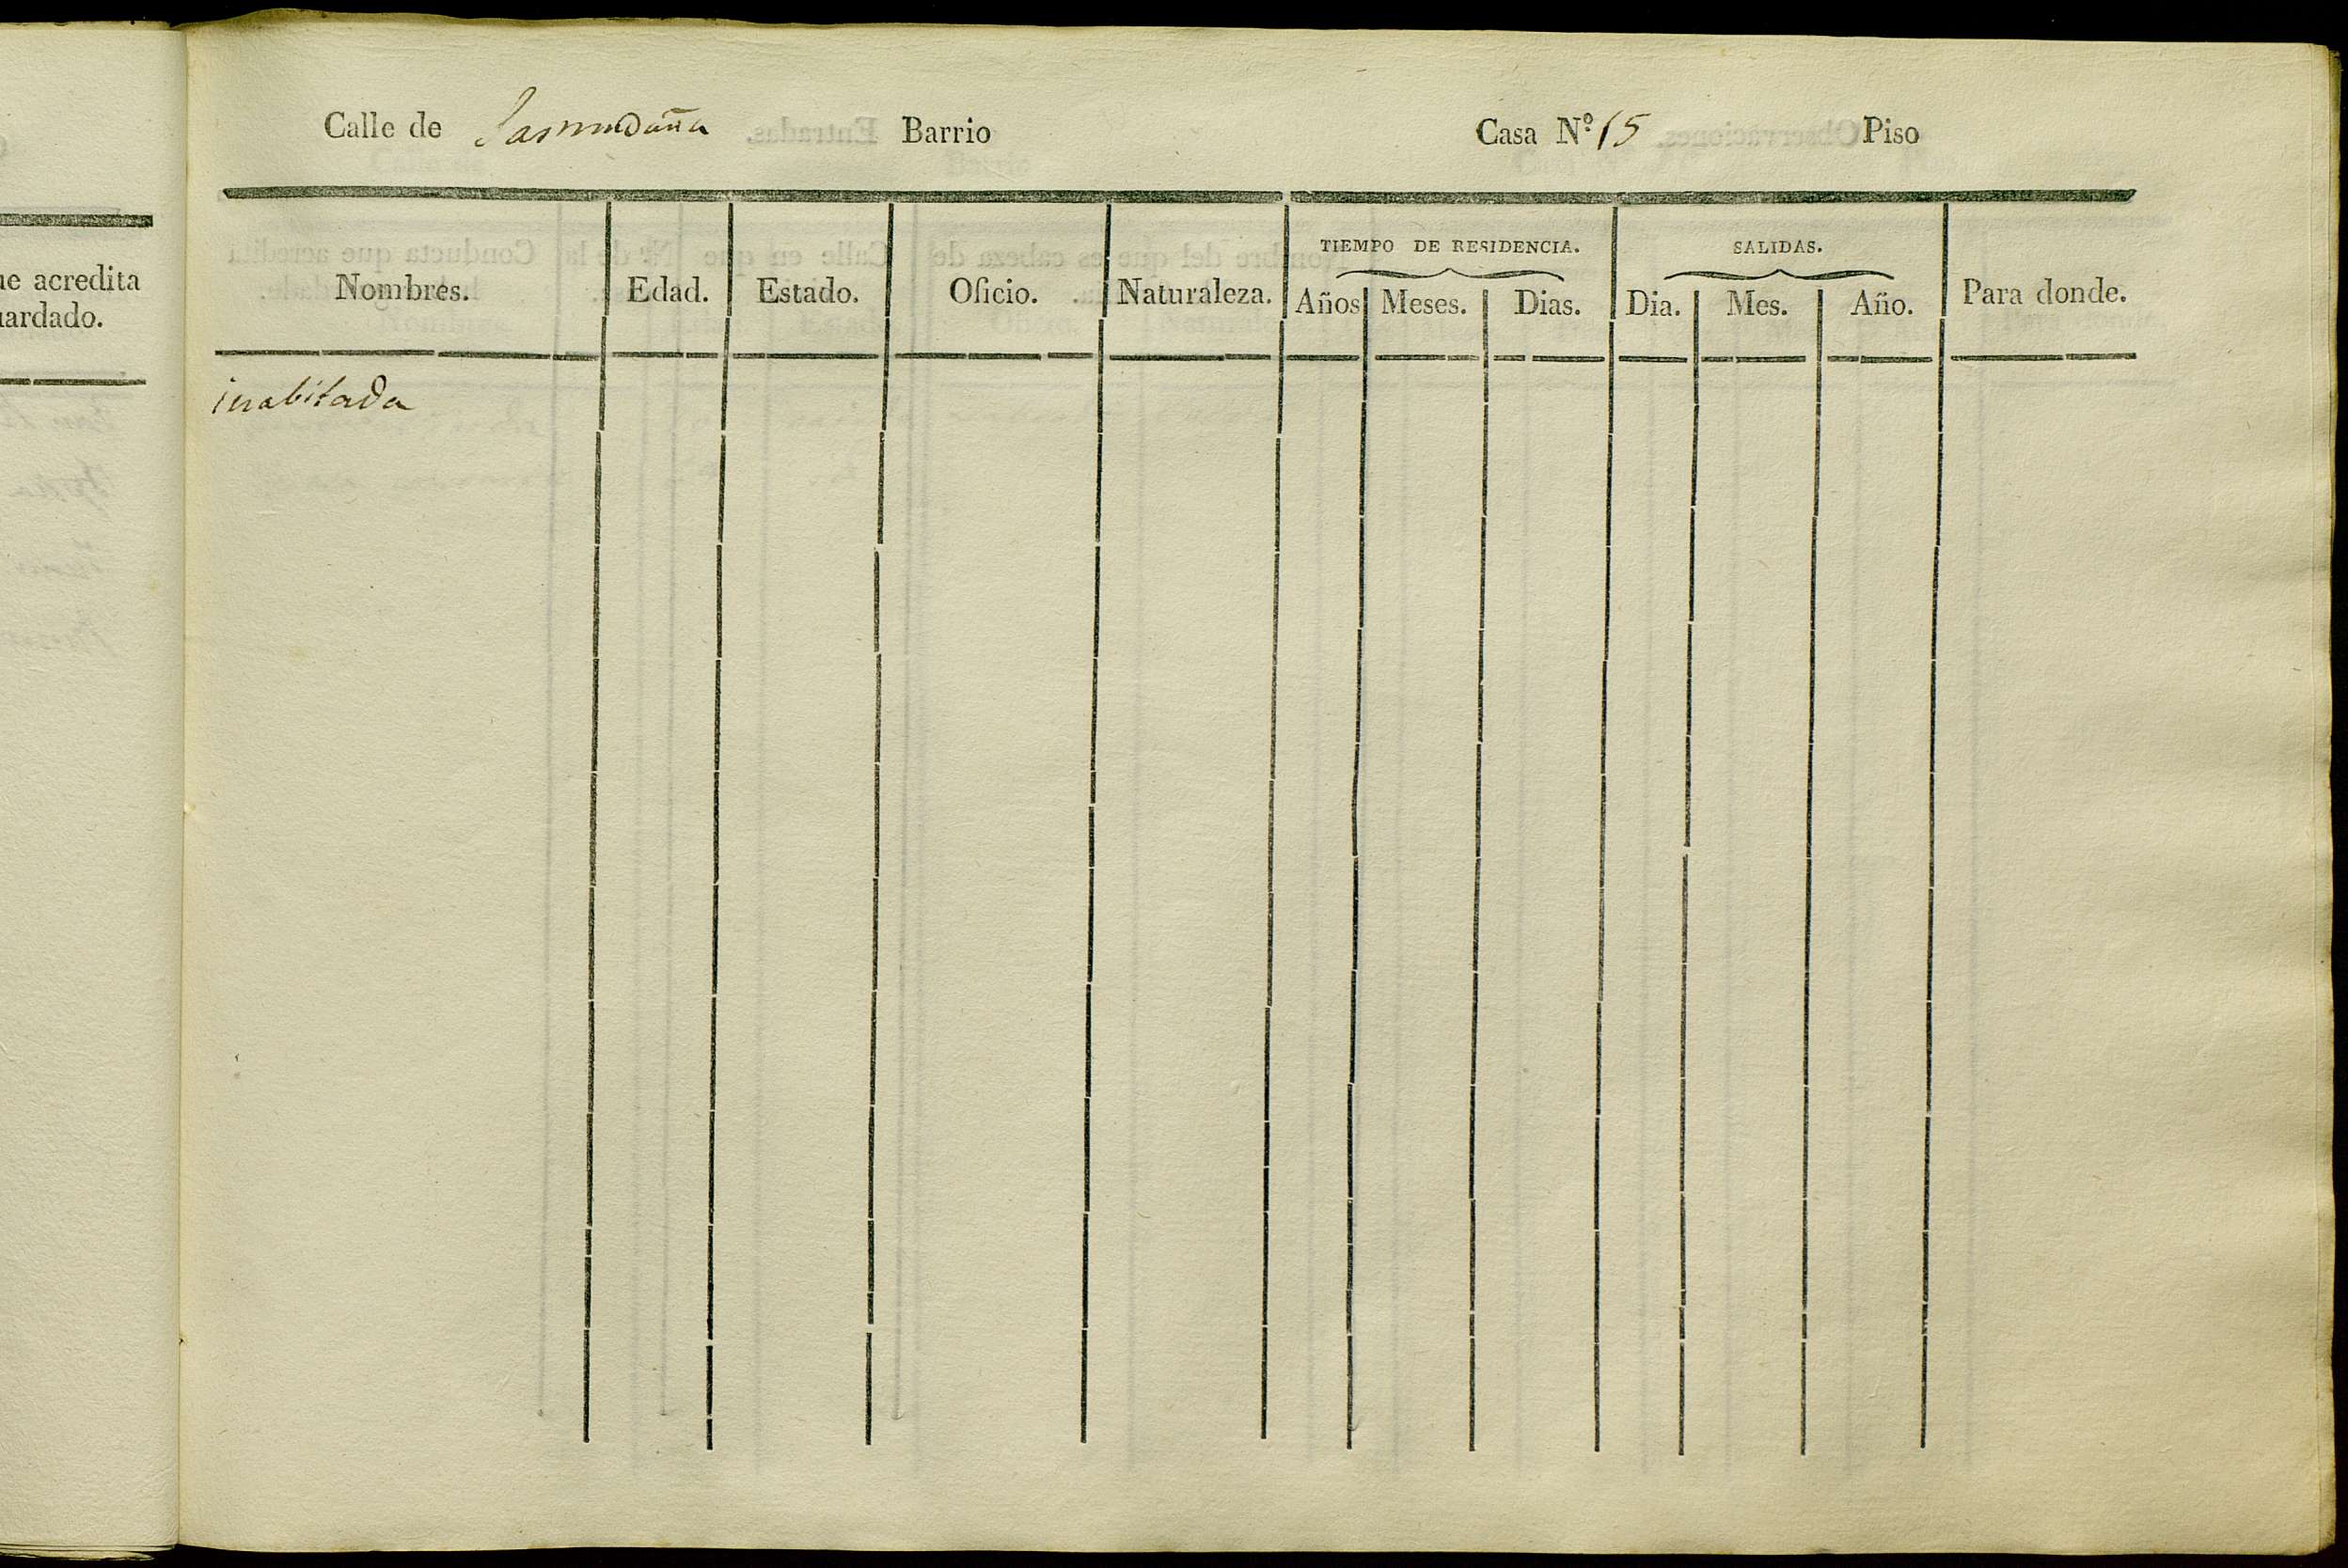 ue acredita
uardado.
Calle de Sasmudaña Barrio Casa Nº 15 Piso
TIEMPO DE RESIDENCIA. SALIDAS.
Nombres. Edad. Estado. Oficio. Naturaleza. Años Meses. Dias. Dia. Mes. Año. Para donde.
inabitada